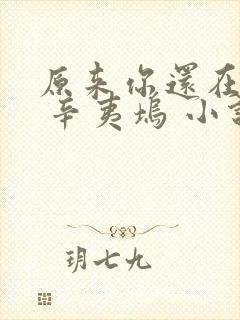 原来你還在
辛夷塢 小
玥七九